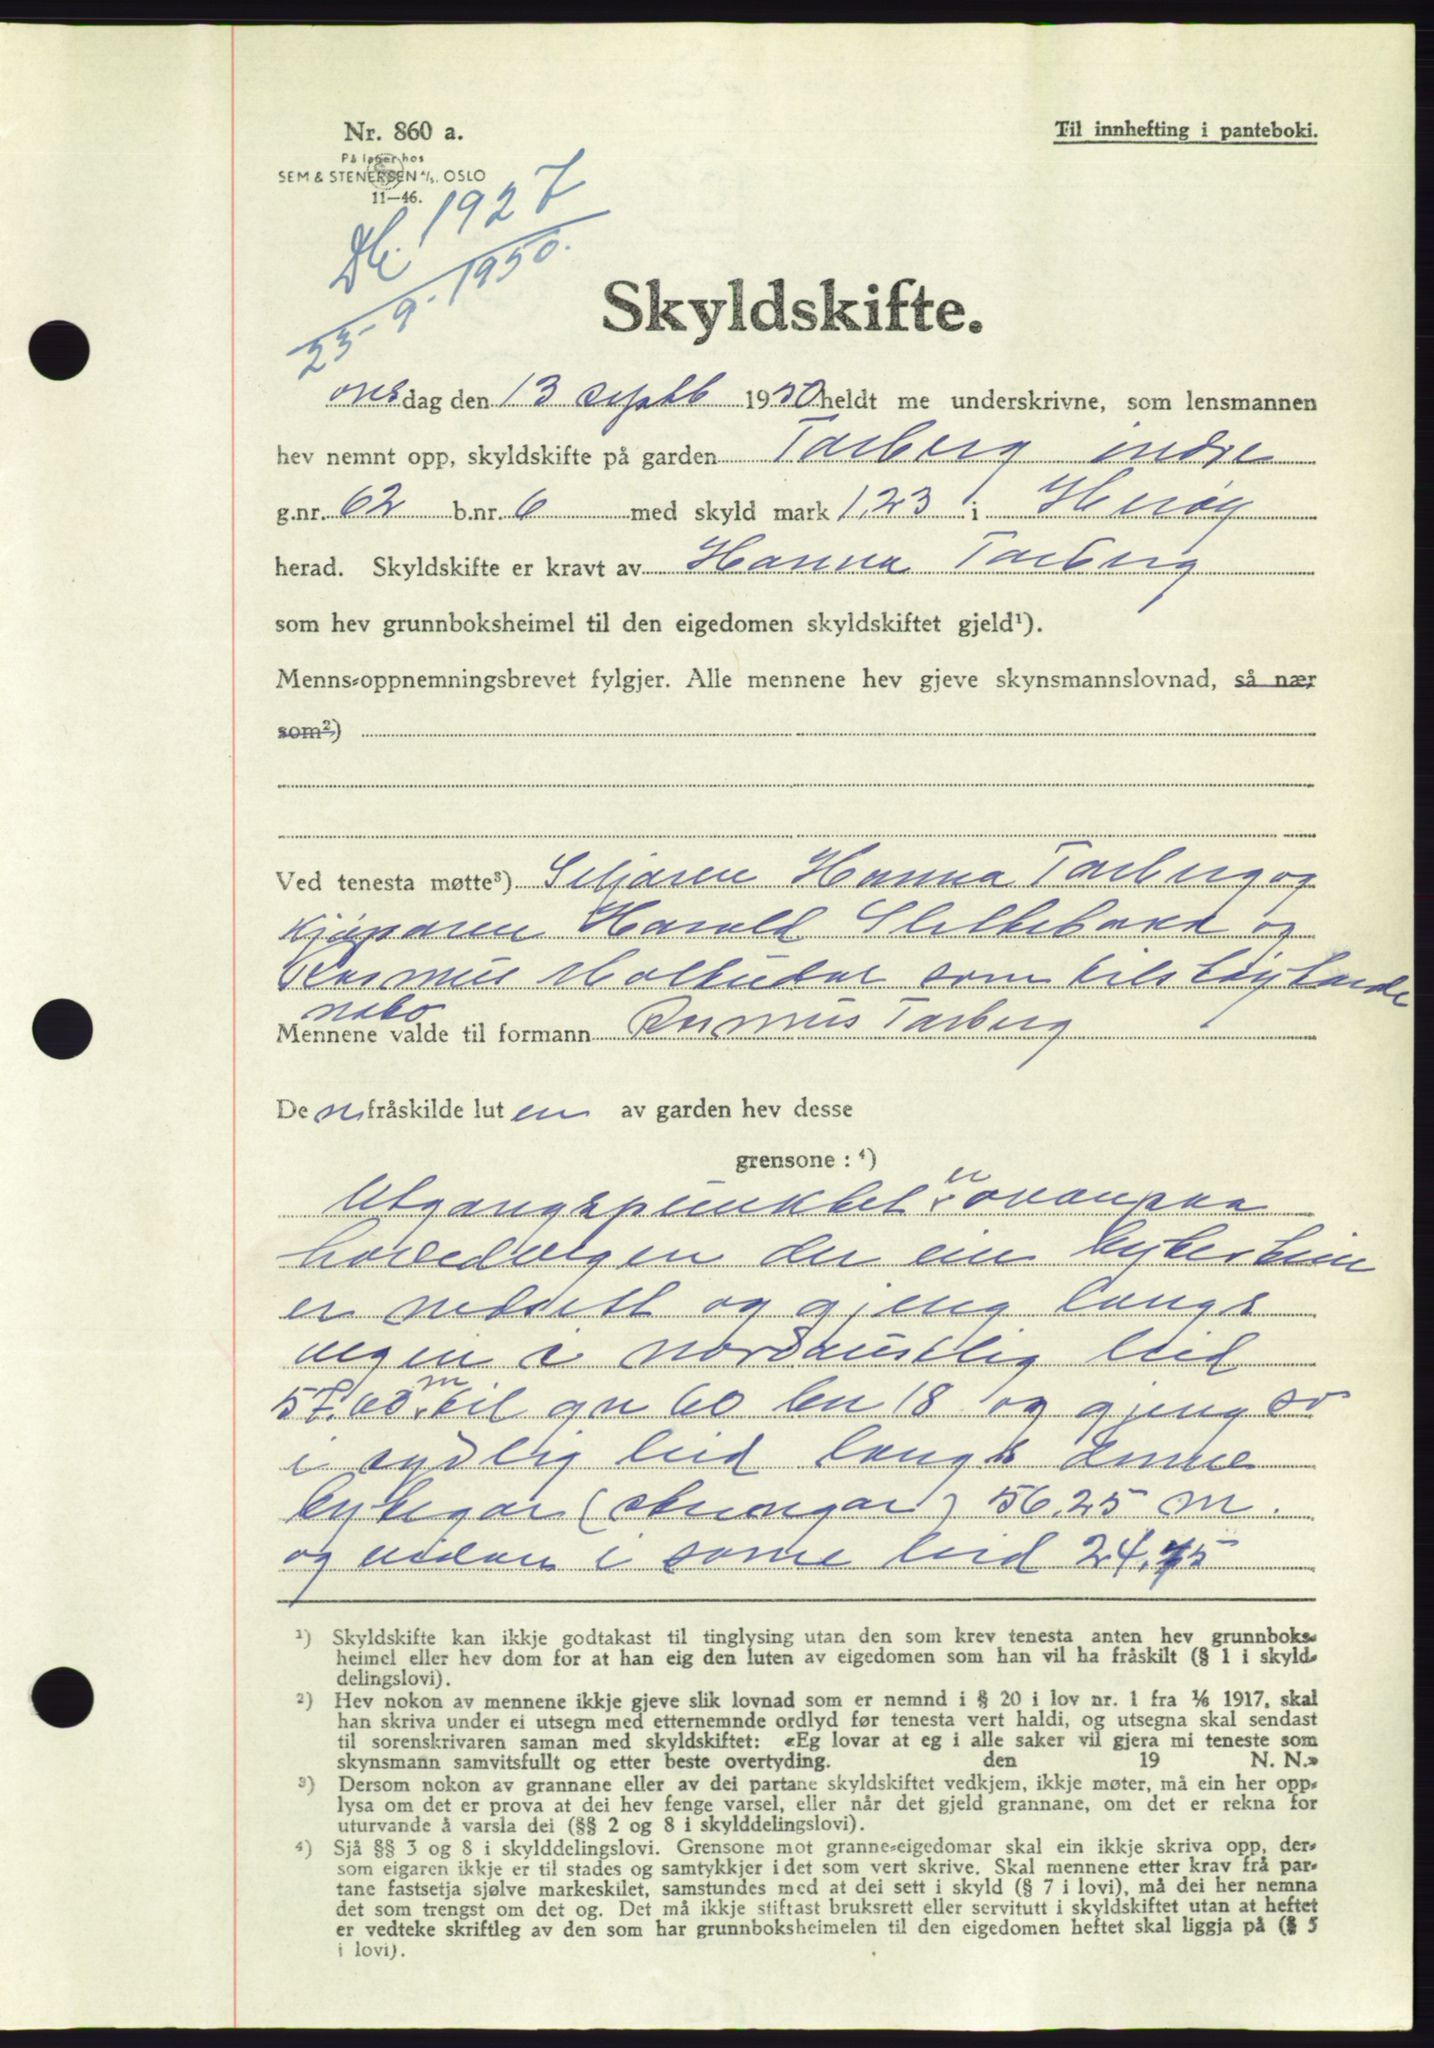 Nr. 860 a.
På lager hos
SEM & STENERSEN A/S. OSLO
11—46.
Til innhefting i panteboki.
1927
23-9-1950.
Skyldskifte.
onsdag den 13 septb 1950 heldt me underskrivne, som lensmannen
hev nemnt opp, skyldskifte på garden Tarberg indre
g.nr. 62 b.nr. 6 med skyld mark 1,23 i Herøy
herad. Skyldskifte er kravt av Hanna Tarberg
som hev grunnboksheimel til den eigedomen skyldskiftet gjeld¹).
Menns-oppnemningsbrevet fylgjer. Alle mennene hev gjeve skynsmannslovnad, så nær
som²)
Ved tenesta møtte³) Seljaren Hanna Tarberg og
kjøparen Harald Slettebakk og
Rasmus Moltudal som tilstøytande
nabo
Mennene valde til formann Rasmus Tarberg
De n fråskilde lut en av garden hev desse
grensone : ⁴)
Utgangspunktet er ovanpaa
hovedvegen der ein bytestein
er nedsett og gjeng langs
vegen i nordaustlig leid
57,60 m til gn 60 bn 18 og gjeng so
i sydlig leid langs denne
bytegar (steingar) 56,25 m.
og vidare i same leid 24,75
¹) Skyldskifte kan ikkje godtakast til tinglysing utan den som krev tenesta anten hev grunnboks-
heimel eller hev dom for at han eig den luten av eigedomen som han vil ha fråskilt (§ 1 i skyld-
delingslovi).
²) Hev nokon av mennene ikkje gjeve slik lovnad som er nemnd i § 20 i lov nr. 1 fra 1/6 1917, skal
han skriva under ei utsegn med etternemnde ordlyd før tenesta vert haldi, og utsegna skal sendast
til sorenskrivaren saman med skyldskiftet: «Eg lovar at eg i alle saker vil gjera mi teneste som
skynsmann samvitsfullt og etter beste overtyding. den 19 N. N.»
³) Dersom nokon av grannane eller av dei partane skyldskiftet vedkjem, ikkje møter, må ein her opp-
lysa om det er prova at dei hev fenge varsel, eller når det gjeld grannane, om det er rekna for
uturvande å varsla dei (§§ 2 og 8 i skylddelingslovi).
⁴) Sjå §§ 3 og 8 i skylddelingslovi. Grensone mot granne-eigedomar skal ein ikkje skriva opp, der-
som eigaren ikkje er til stades og samtykkjer i det som vert skrive. Skal mennene etter krav frå par-
tane fastsetja sjølve markeskilet, samstundes med at dei sett i skyld (§ 7 i lovi), må dei her nemna
det som trengst om det og. Det må ikkje stiftast bruksrett eller servitutt i skyldskiftet utan at heftet
er vedteke skriftleg av den som har grunnboksheimelen til den eigedomen heftet skal liggja på (§ 5
i lovi).